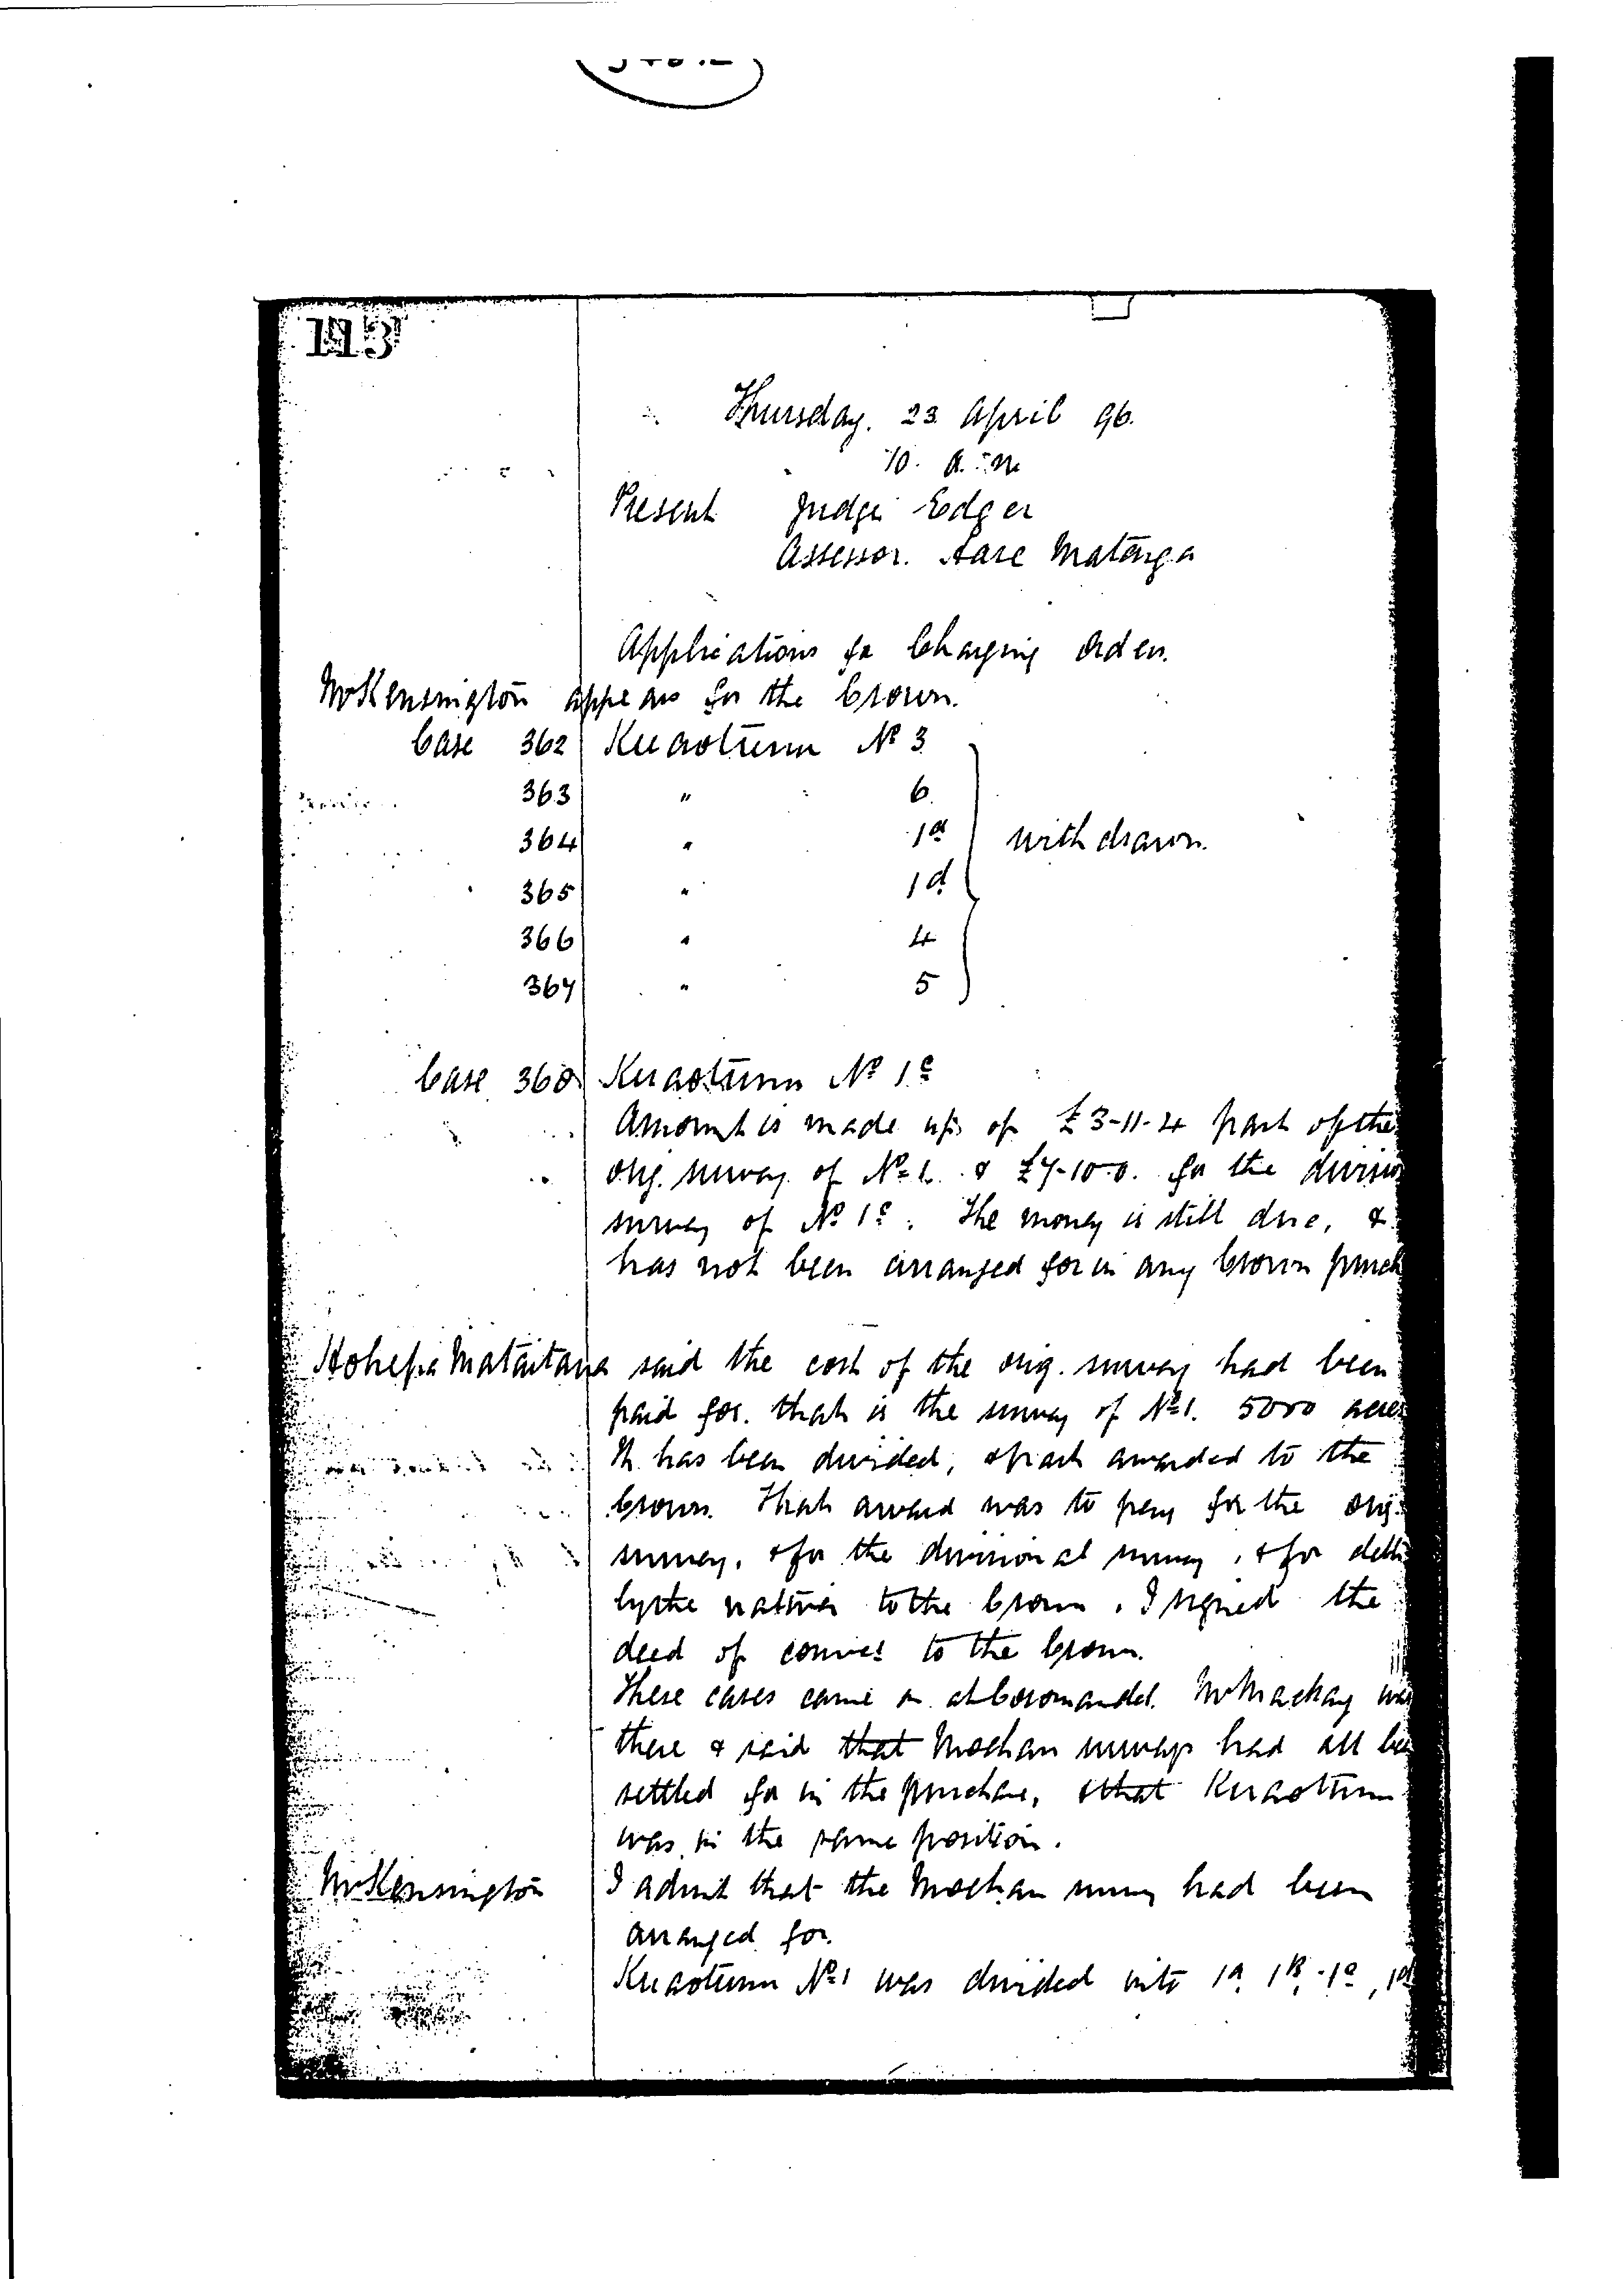 113
Thursday. 23 April 96.
10. a.m
Present Judge Edger
Assessor. Hare Matenga
Applications for Charging Orders.
Mr Kensington appears for the Crown.
Case 362 Kuaotunu No 3
363 " 6.
364 " 1a
365 " 1d
withdrawn.
366 " 4
367 " 5
Case 360 Kuaotunu No 1c
Amount is made up of £3-11-4 part of the
orig. survey of No 1. & £7-10-0. for the division
survey of No 1c. The money is still due, &
has not been arranged for in any Crown purch
Hohepa Mataitaua said the cost of the orig. survey had been
paid for. that is the survey of No 1. 5000 acres
It has been divided, & part awarded to the
Crown. That award was to pay for the orig.
survey, & for the divisional survey, & for debts
by the natives to the Crown. I signed the
deed of convce to the Crown.
These cases came on at Coromandel. Mr Mackay was
there & said that Moehau surveys had all bee
settled for in the purchase, & that Kuaotunu
was in the same position.
Mr Kensington I admit that the Moehau survey had been
arranged for.
Kuaotunu No 1 was divided into 1a, 1B, 1c, 1d